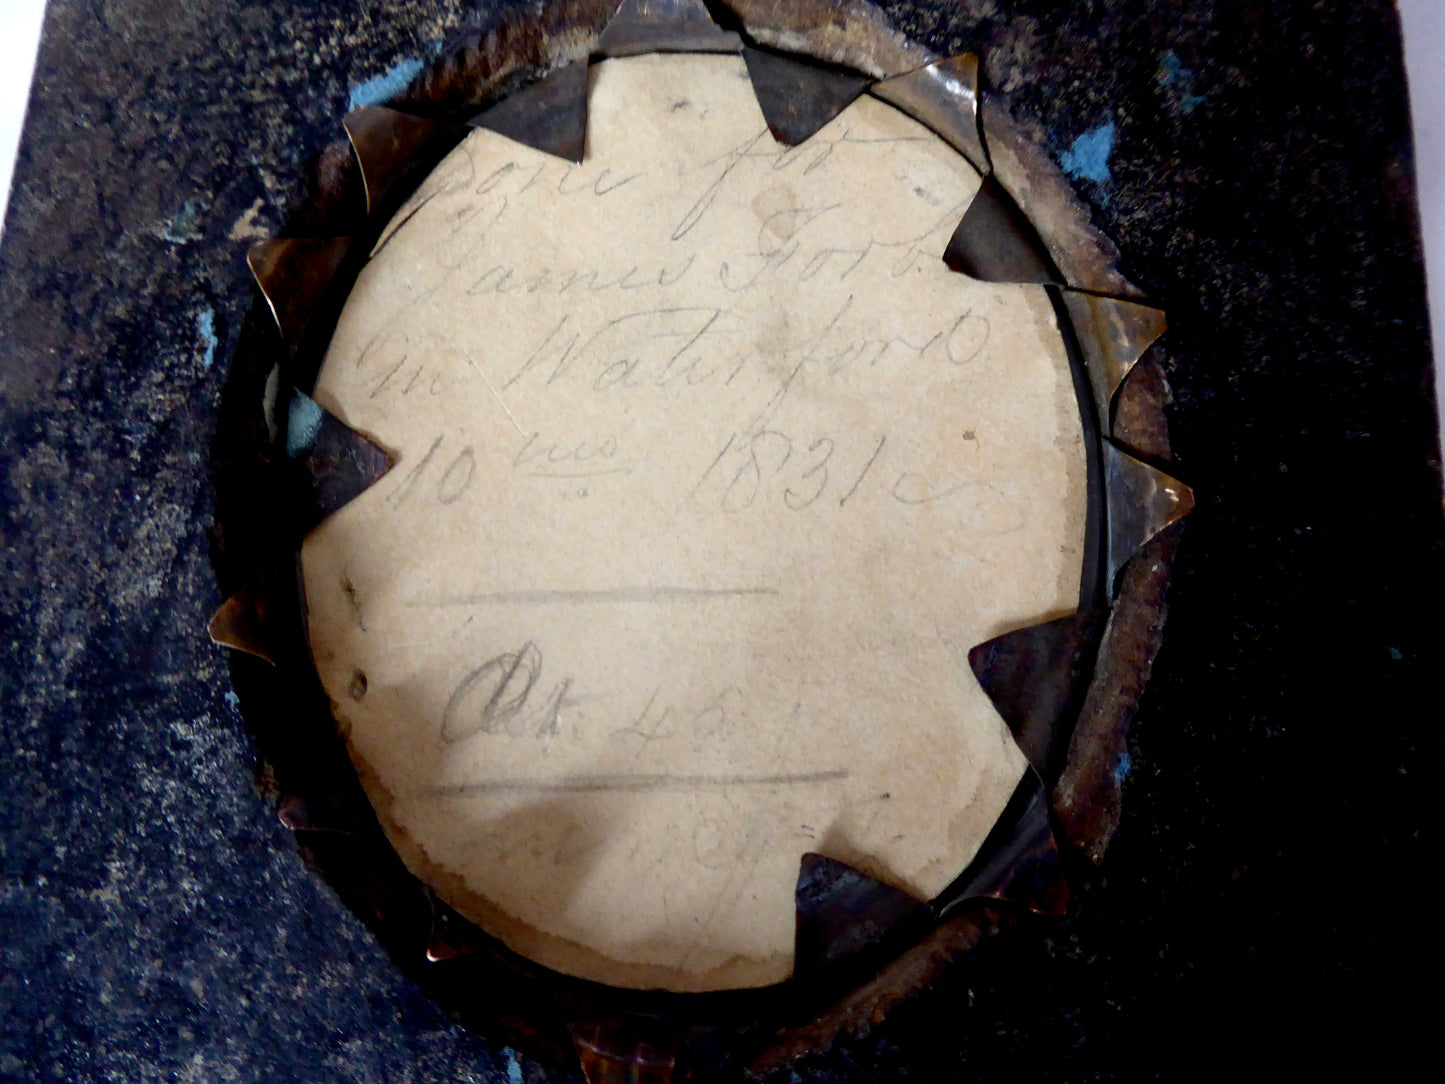 Done for
James Forb
in Waterford
10 mo 1831
Aet. 46